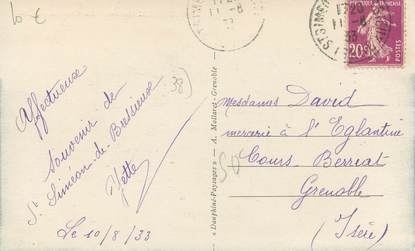 10 €
Affectueux
souvenir de
St Siméon-de-Bressieux
Yette
Le 10/8/33
(38)
"Dauphiné-Paysages" — A. Mollaret - Grenoble
Mesdames David
mercerie à l'Eglantine
Cours Berriat
Grenoble
(Isère)
POSTES
20c